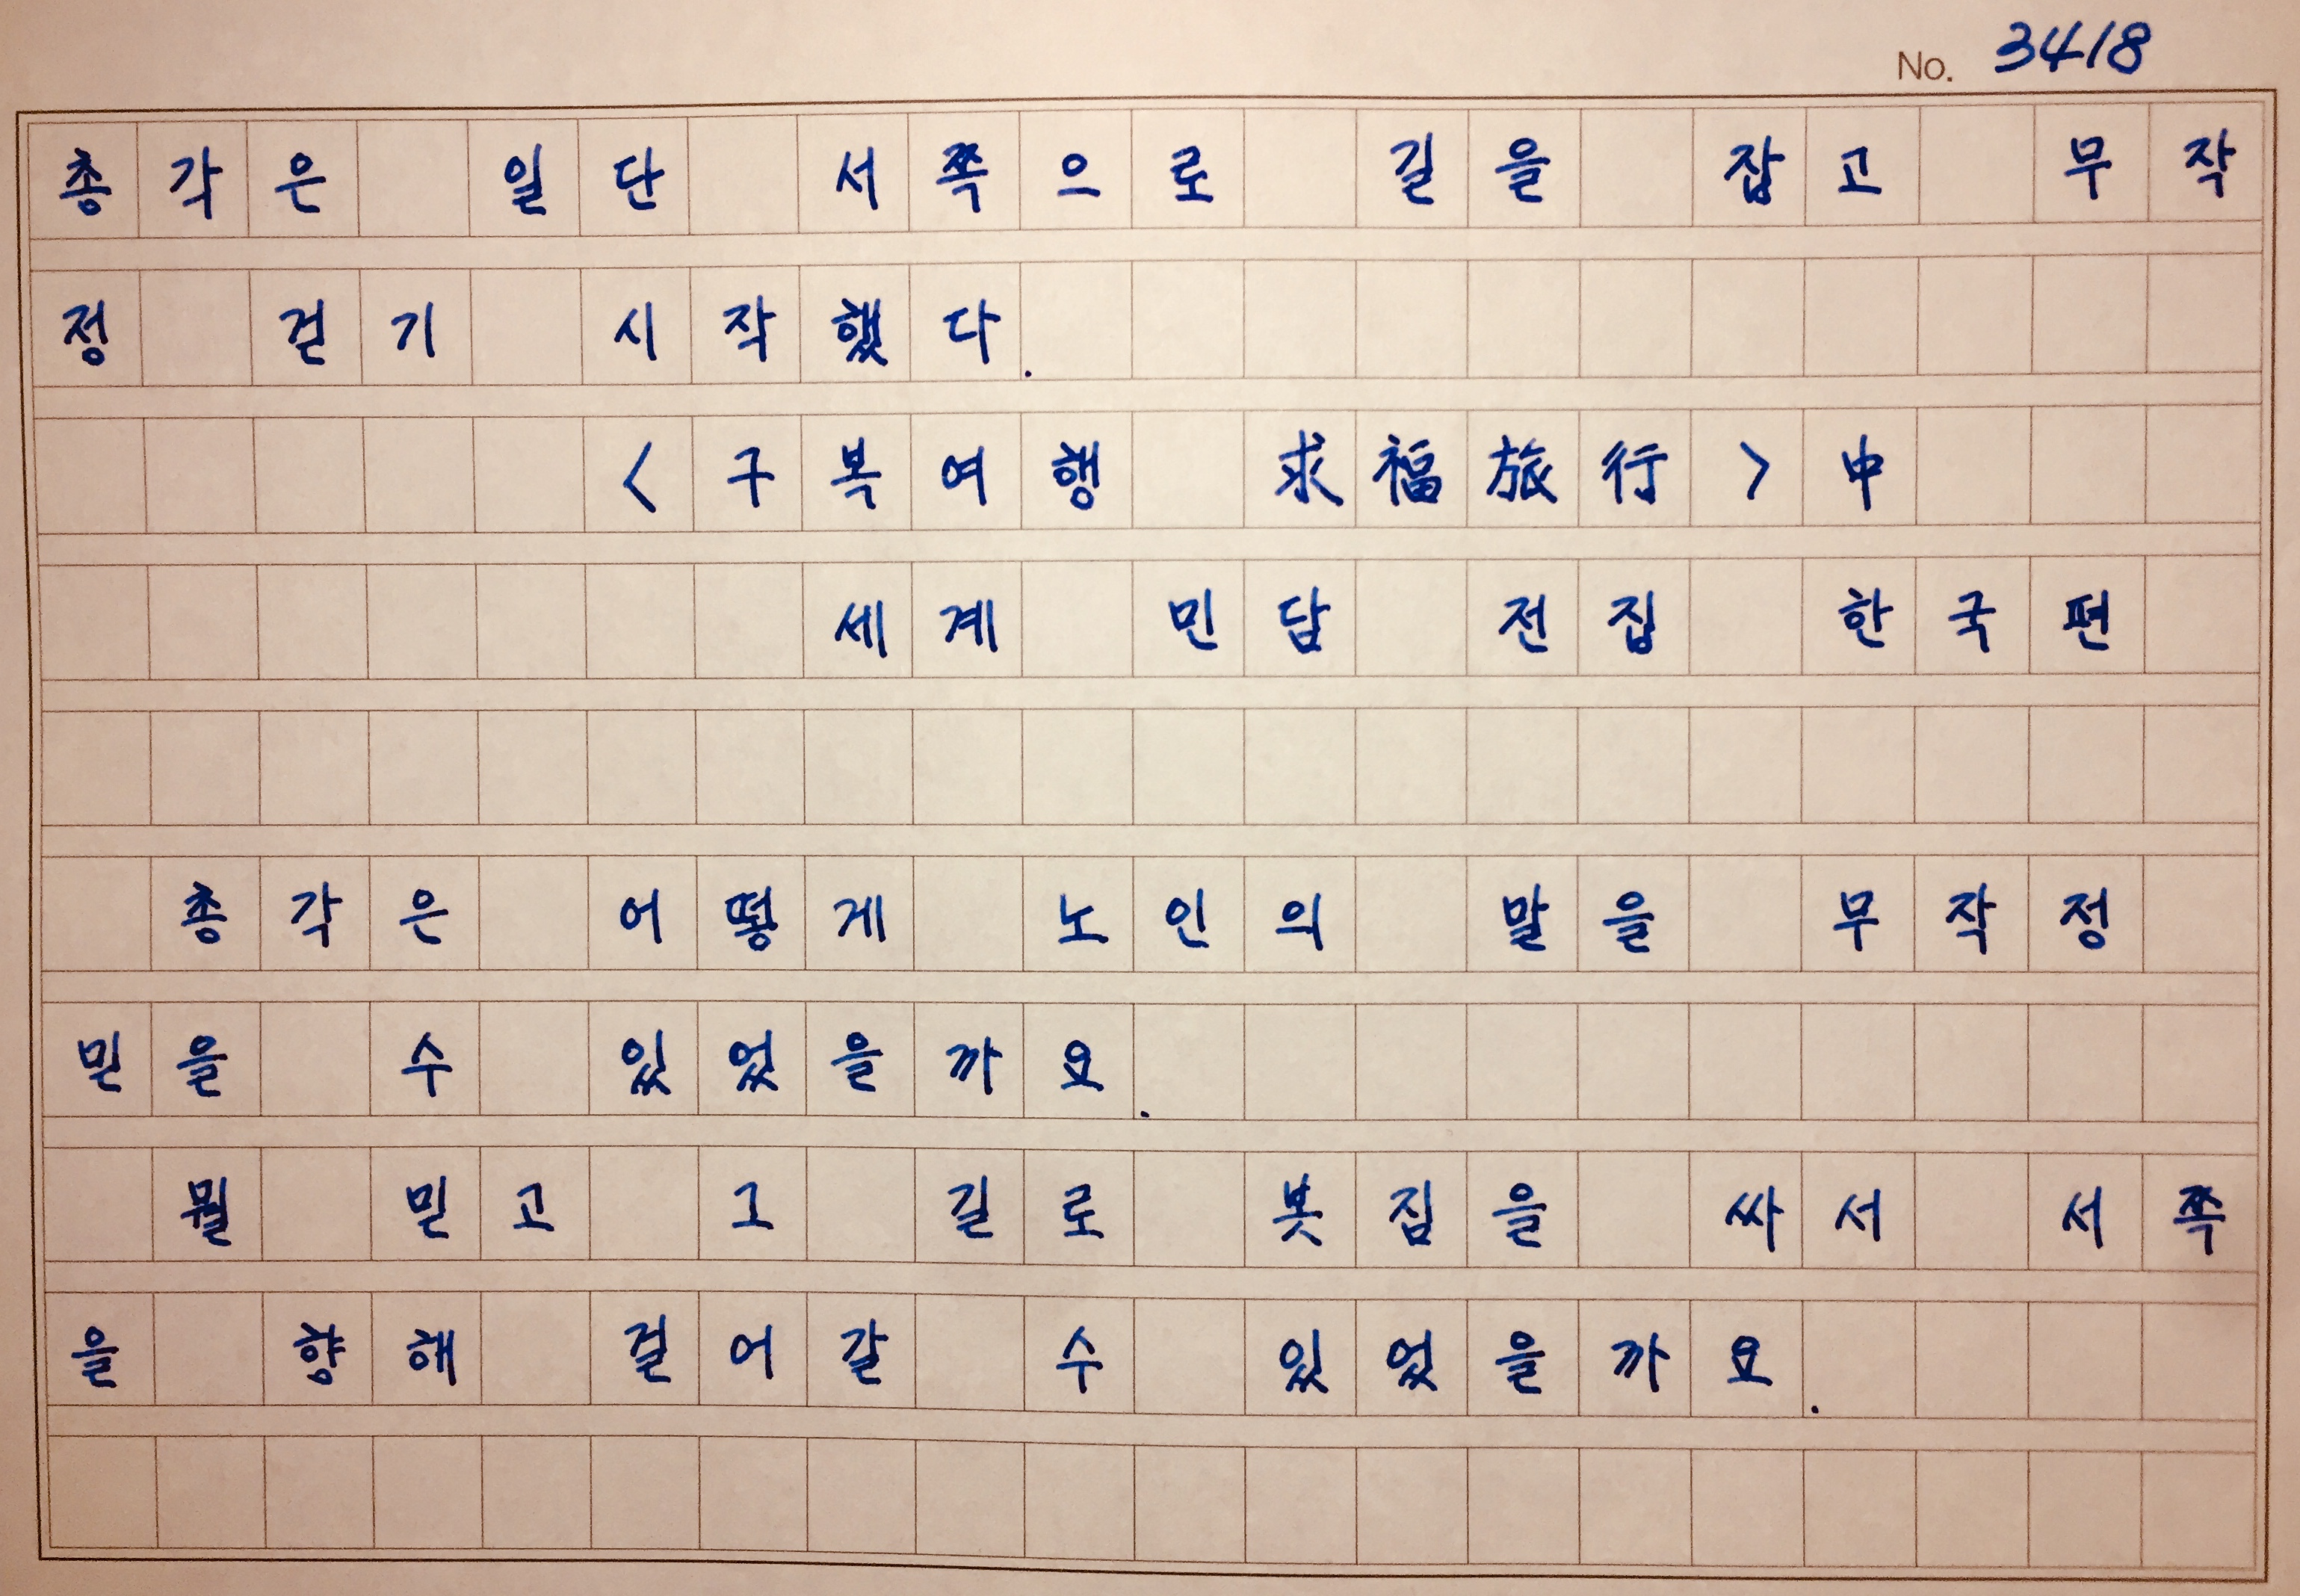 No. 3418
총각은 일단 서쪽으로 길을 잡고 무작
정 걷기 시작했다.
<구복여행 求福旅行>中
세계 민담 전집 한국편
총각은 어떻게 노인의 말을 무작정
믿을 수 있었을까요.
뭘 믿고 그 길로 봇짐을 싸서 서쪽
을 향해 걸어갈 수 있었을까요.